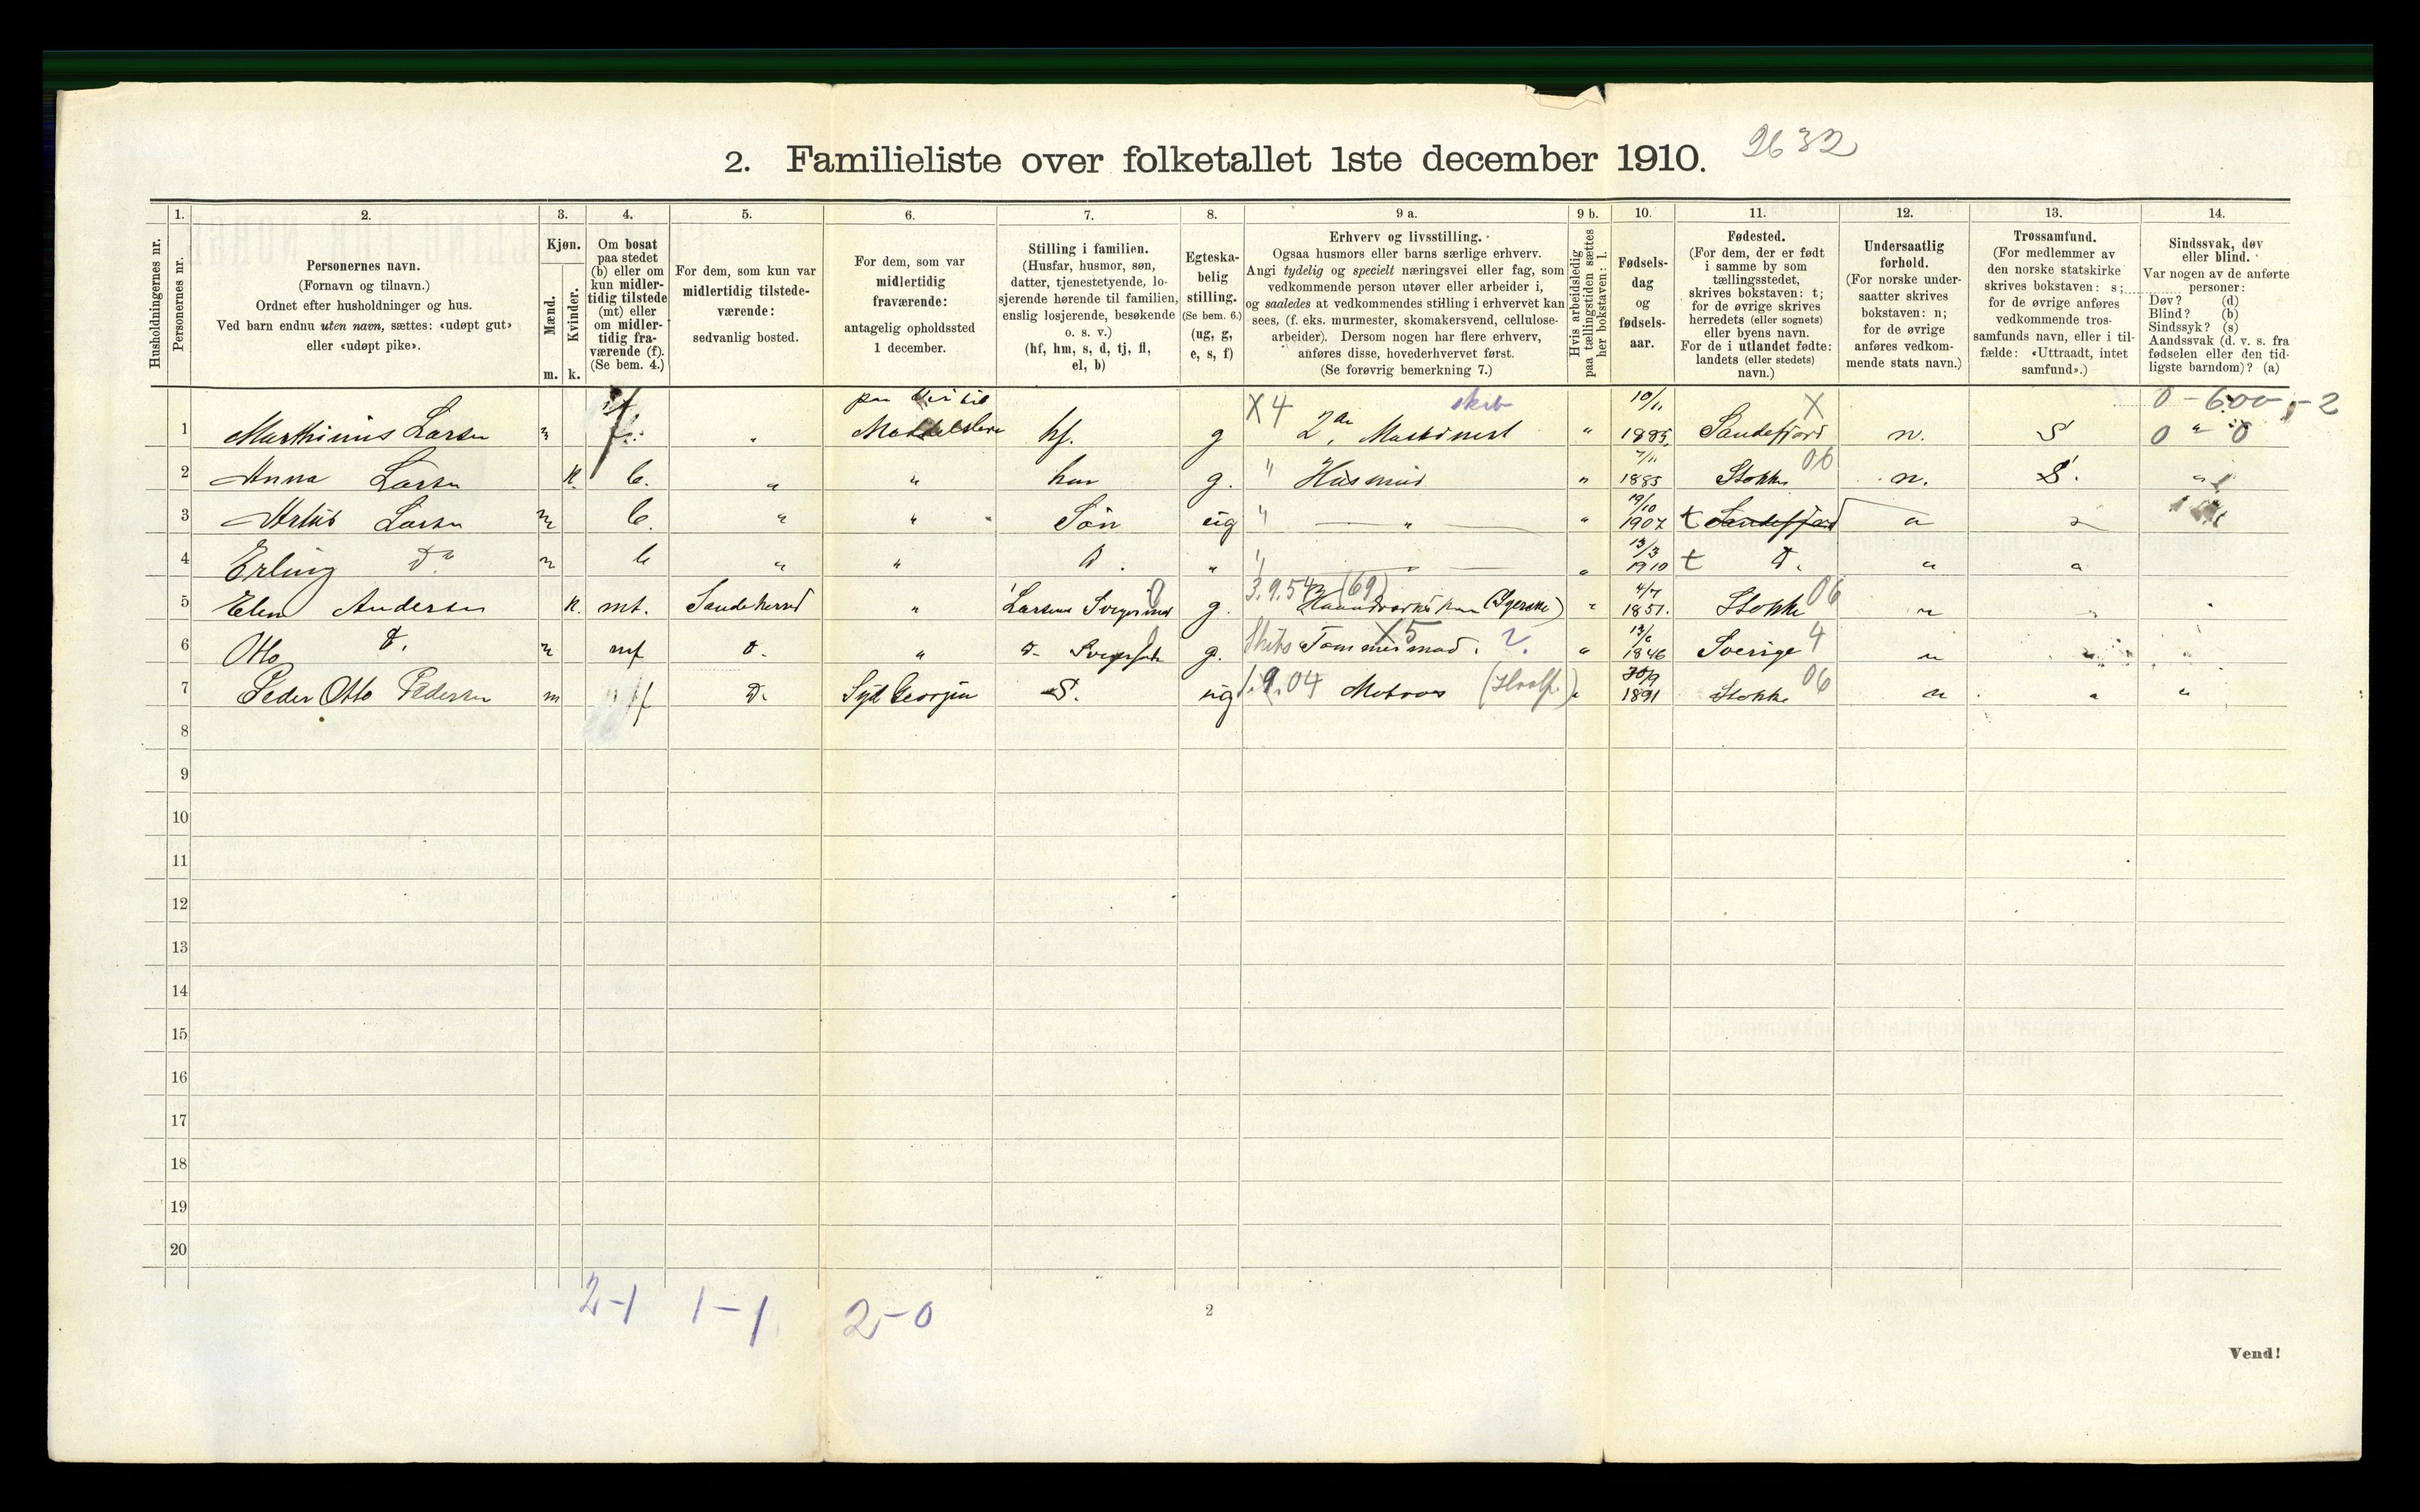 2. Familieliste over folketallet 1ste december 1910. 2632
Husholdningernes nr.
1. Personernes nr.
2. Personernes navn.
(Fornavn og tilnavn.)
Ordnet efter husholdninger og hus.
Ved barn endnu uten navn, sættes: «udøpt gut»
eller «udøpt pike».
3. Kjøn.
Mænd. m.
Kvinder. k.
4. Om bosat
paa stedet
(b) eller om
kun midler-
tidig tilstede
(mt) eller
om midler-
tidig fra-
værende (f).
(Se bem. 4.)
5. For dem, som kun var
midlertidig tilstede-
værende:
sedvanlig bosted.
6. For dem, som var
midlertidig
fraværende:
antagelig opholdssted
1 december.
7. Stilling i familien.
(Husfar, husmor, søn,
datter, tjenestetyende, lo-
sjerende hørende til familien,
enslig losjerende, besøkende
o. s. v.)
(hf, hm, s, d, tj, fl,
el, b)
8. Egteska-
belig
stilling.
(Se bem. 6.)
(ug, g,
e, s, f)
9 a. Erhverv og livsstilling.
Ogsaa husmors eller barns særlige erhverv.
Angi tydelig og specielt næringsvei eller fag, som
vedkommende person utøver eller arbeider i,
og saaledes at vedkommendes stilling i erhvervet kan
sees, (f. eks. murmester, skomakersvend, cellulose-
arbeider). Dersom nogen har flere erhverv,
anføres disse, hovederhvervet først.
(Se forøvrig bemerkning 7.)
9 b. Hvis arbeidsledig
paa tællingstiden sættes
her bokstaven: l.
10. Fødsels-
dag
og
fødsels-
aar.
11. Fødested.
(For dem, der er født
i samme by som
tællingsstedet,
skrives bokstaven: t;
for de øvrige skrives
herredets (eller sognets)
eller byens navn.
For de i utlandet fødte:
landets (eller stedets)
navn.)
12. Undersaatlig
forhold.
(For norske under-
saatter skrives
bokstaven: n;
for de øvrige
anføres vedkom-
mende stats navn.)
13. Trossamfund.
(For medlemmer av
den norske statskirke
skrives bokstaven: s;
for de øvrige anføres
vedkommende tros-
samfunds navn, eller i til-
fælde: «Uttraadt, intet
samfund».)
14. Sindssvak, døv
eller blind.
Var nogen av de anførte
personer:
Døv? (d)
Blind? (b)
Sindssyk? (s)
Aandssvak (d. v. s. fra
fødselen eller den tid-
ligste barndom)? (a)
0 - 600 - 2
1 Marthinius Larsen m f. " hf. g X4 2den Maskinist " 10/11 Sandefjord X n. S 0 " 0
2 Anna Larsen K. b. " " hm g. " Husmor " 7/11 1885 Stokke 06 n. S.
3 Larsen m b. " " Søn ug " " " 19/10 1907 t Sandefjord " "
4 Erling Do m b " " D. " " " " 13/3 1910 t D. " "
5 Elen Andersen K. mt. Sandeherred " Larsens g. 3.9.54 (69) " 4/7 1851. Stokke 06 "
6 Otto D. m mt D. " D- g. Tømmermand. " 1846 Sverige 4 "
7 Peder Otto Pedersen m f D. Syd Georgien S. ug 1.9.04 Matros (Hvalf.) " 30/9 1891 Stokke 06 " " "
8
9
10
11
12
13
14
15
16
17
18
19
20
2-1 1-1 2-0
2
Vend!